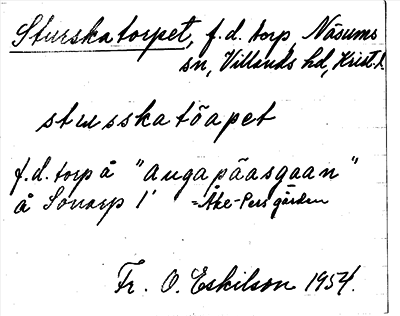 Sturskatorpet, f.d. torp Näsums
sn, Villands hd, Krist. l.
stusskatöapet
f.d. torp å "augapäasgaan"
å Sonarp 1' =Åke-Pers gården
Fr. O. Eskilson 1954.